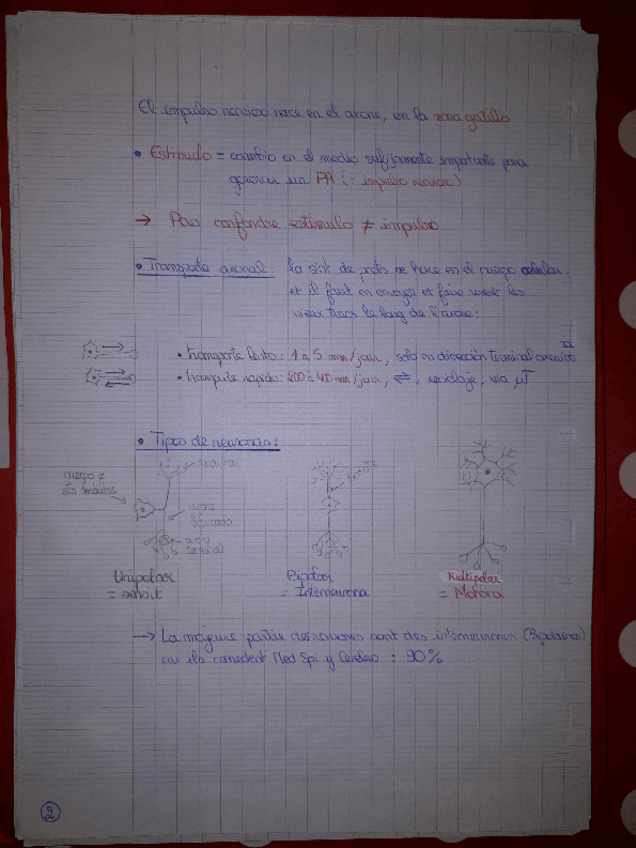 El impulso nervioso nace en el axone, en la zona gatillo
• Estimulo = cambio en el medio sufijamente importante para
generar un PA (= impulso nervioso)
→ Pas confondre estimulo ≠ impulso
• Transporte axonal : la sint de prots se hace en el cuerpo
et il faut en envoyer et faire revenir les
vieux trucs le long de l'axone :
• transporte lento : 1 à 5 mm/jour, solo en dirección Terminal
• transporte rapido : 200 à 400 mm/jour, ⇌, reciclaje, via µT
• Tipos de neuronas :
cuerpo ≠
sin dendritas
axon
bifurcado
axon
terminal
Unipolar
Bipolar
Multipolar
=
= Interneurona
= Motora
→ La majeure partie des neurones sont des interneurones (Bipolaires)
car ils connectent Med Spi y Cerebro : 90%
2